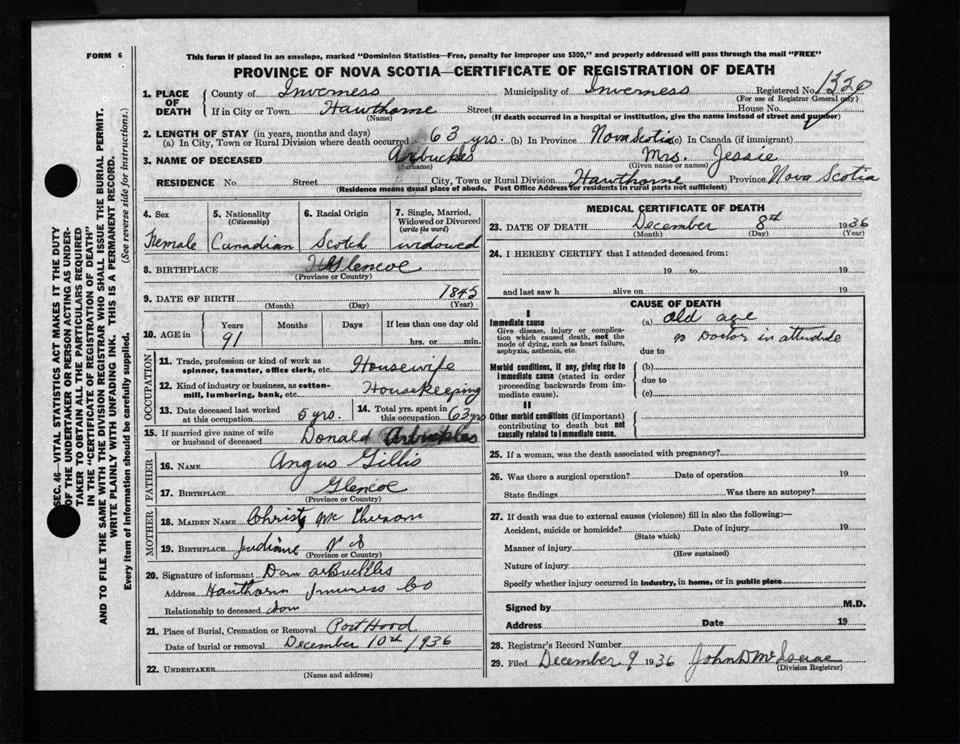 FORM 6
This form if placed in an envelope, marked "Dominion Statistics—Free, penalty for improper use $300," and properly addressed will pass through the mail "FREE"
PROVINCE OF NOVA SCOTIA—CERTIFICATE OF REGISTRATION OF DEATH
SEC. 46—VITAL STATISTICS ACT MAKES IT THE DUTY
OF THE UNDERTAKER OR PERSON ACTING AS UNDER-
TAKER TO OBTAIN ALL THE PARTICULARS REQUIRED
IN THE "CERTIFICATE OF REGISTRATION OF DEATH"
AND TO FILE THE SAME WITH THE DIVISION REGISTRAR WHO SHALL ISSUE THE BURIAL PERMIT.
WRITE PLAINLY WITH UNFADING INK. THIS IS A PERMANENT RECORD.
Every item of information should be carefully supplied. (See reverse side for instructions.)
1. PLACE OF DEATH
County of Inverness Municipality of Inverness Registered No. 1320
(For use of Registrar General only)
If in City or Town Hawthorne Street House No.
(Name) (If death occurred in a hospital or institution, give the name instead of street and number)
2. LENGTH OF STAY (in years, months and days)
(a) In City, Town or Rural Division where death occurred 63 yrs. (b) In Province Nova Scotia (c) In Canada (if immigrant)
3. NAME OF DECEASED Arbuckles Mrs. Jessie
(Surname) (Given name or names)
RESIDENCE No Street City, Town or Rural Division Hawthorne Province Nova Scotia
(Residence means usual place of abode. Post Office Address for residents in rural parts not sufficient)
4. Sex 5. Nationality (Citizenship) 6. Racial Origin 7. Single, Married, Widowed or Divorced (write the word)
Female Canadian Scotch widowed
8. BIRTHPLACE Glencoe
(Province or Country)
9. DATE OF BIRTH 1845
(Month) (Day) (Year)
10. AGE in Years Months Days If less than one day old
91 hrs. or min.
OCCUPATION
11. Trade, profession or kind of work as
spinner, teamster, office clerk, etc. Housewife
12. Kind of industry or business, as cotton-
mill, lumbering, bank, etc. Housekeeping
13. Date deceased last worked
at this occupation 5 yrs.
14. Total yrs. spent in
this occupation 63 yrs
15. If married give name of wife
or husband of deceased Donald Arbuckles
FATHER
16. NAME Angus Gillis
17. BIRTHPLACE Glencoe
(Province or Country)
MOTHER
18. MAIDEN NAME Christy
19. BIRTHPLACE N S
(Province or Country)
20. Signature of informant Dan arBuckles
Address Hawthorn Co
Relationship to deceased son
21. Place of Burial, Cremation or Removal Port Hood
Date of burial or removal December 10th 1936
22. UNDERTAKER
(Name and address)
MEDICAL CERTIFICATE OF DEATH
23. DATE OF DEATH December 8th 1936
(Month) (Day) (Year)
24. I HEREBY CERTIFY that I attended deceased from:
19 to 19
and last saw h alive on 19
CAUSE OF DEATH
I
Immediate cause
Give disease, injury or complica-
tion which caused death, not the
mode of dying, such as heart failure,
asphyxia, asthenia, etc.
(a) old age
no Doctor in
due to
Morbid conditions, if any, giving rise to
immediate cause (stated in order
proceeding backwards from im-
mediate cause).
(b)
due to
(c)
II
Other morbid conditions (if important)
contributing to death but not
causally related to immediate cause.
25. If a woman, was the death associated with pregnancy?
26. Was there a surgical operation? Date of operation 19
State findings Was there an autopsy?
27. If death was due to external causes (violence) fill in also the following:—
Accident, suicide or homicide? Date of injury 19
(State which)
Manner of injury
(How sustained)
Nature of injury
Specify whether injury occurred in industry, in home, or in public place
Signed by M.D.
Address Date 19
28. Registrar's Record Number
29. Filed December 9 1936 John D Mc Isaac
(Division Registrar)